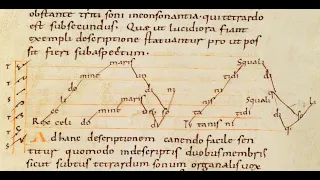 obstante triti soni inconsonantia. qui tetrardo
est subsecundus. Quę ut lucidiora fiant
exempli descriptione statuantur pro ut pos
sit fieri subaspectum.
maris Squali
mine un tidi di
do maris di ni Squali
mine tidi
Rex celi do so Ty tanis ni
Ad hanc descriptionem canendo facile sen
titur quomodo indescriptis duobus membris
sicut subtus tetrardum sonum organalis vox